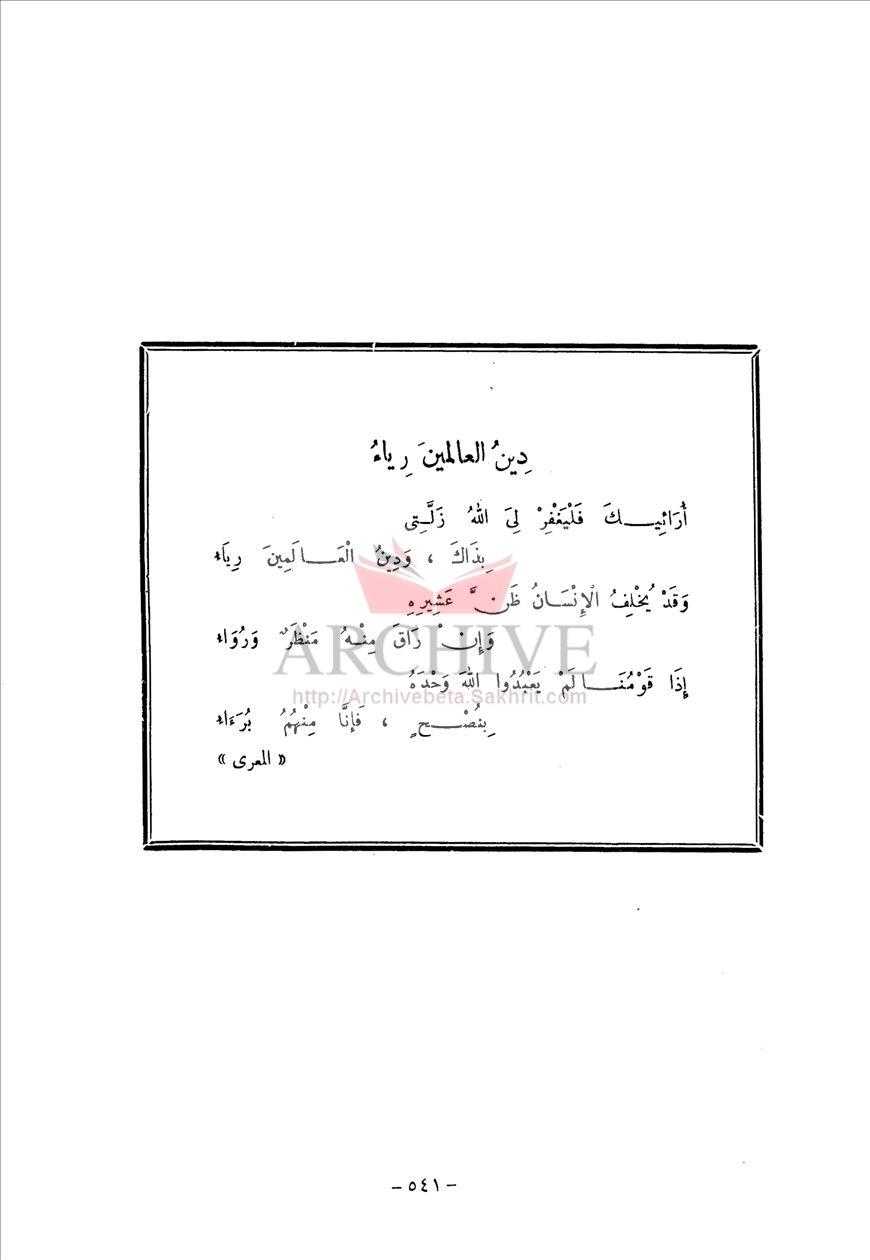 دِينُ العالمينَ رِياءُ
أُرَائِيكَ فَلْيَغْفِرْ لِىَ اللهُ زَلَّتِى
بِذَاكَ ، وَدِينُ الْعَالَمِينَ رِيَاءُ
وَقَدْ يُخْلِفُ الإِنْسَانُ ظَنَّ عَشِيرِهِ
وَإِنْ رَاقَ مِنْهُ مَنْظَرٌ وَرُوَاءُ
إِذَا قَوْمُنَا لَمْ يَعْبُدُوا اللهَ وَحْدَهُ
بِنُصْحٍ ، فَإِنَّا مِنْهُمُ بُرَءَاءُ
« المعرى »
ARCHIVE
http://Archivebeta.Sakhrit.com
- ٥٤١ -